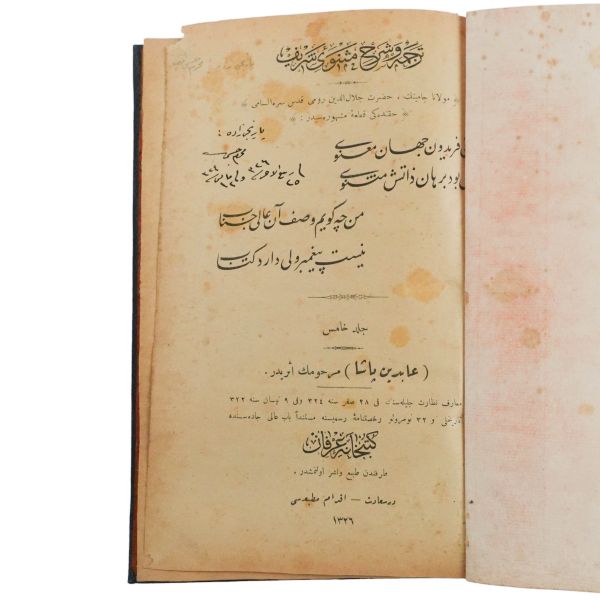 ترجمه و شرح مثنوئ شريف
مولانا جامينك ، حضرت جلال الدين رومى قدس سره السامى
حقنده كى قطعهٔ مشهوره سيدر :
فريدون جهان معنوى
بود برهان ذاتش مثنوى
من چه كويم وصف آن عالى جناب
نيست پيغمبر ولى دارد كتاب
جلد خامس
( عابدين پاشا ) مرحومك اثريدر .
معارف نظارت جليله سنك فى ٢٨ صفر سنه ٣٢٤ وفى ٩ نيسان سنه ٣٢٢
تاريخلى و ٣٢ نومرولو رخصتنامهٔ رسميه سنه مستنداً باب عالى جاده سنده
كتبخانهٔ عرفان
طرفندن طبع ونشر اولنمشدر .
درسعادت — اقدام مطبعه سى
١٣٢٦